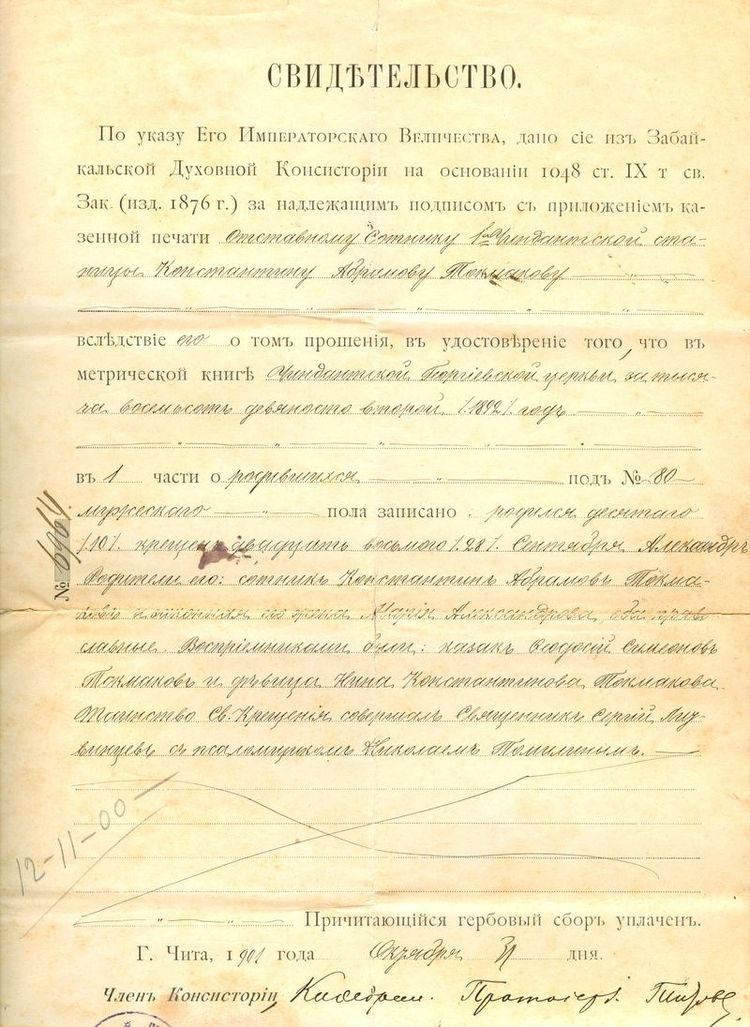 СВИДѢТЕЛЬСТВО.
По указу Его Императорскаго Величества, дано сіе изъ Забай-
кальской Духовной Консисторіи на основаніи 1048 ст. IX т св.
Зак. (изд. 1876 г.) за надлежащимъ подписомъ съ приложеніемъ ка-
зенной печати Отставному Сотнику 1й Чиндантской ста-
ницы Константину Абрамову Токмакову
вслѣдствіе его о томъ прошенія, въ удостовѣреніе того, что въ
метрической книгѣ Чиндантской Георгіевской церкви, за тыся-
ча восемьсотъ девяносто второй /1892/ годъ
въ 1 части о родившихся подъ № 80
мужескаго пола записано: родился десятаго
/10/ крещенъ двадцать восьмого /28/ Сентября Александръ
Родители его: сотникъ Константинъ Абрамовъ Токма-
ковъ и законная его жена Марія Александрова, оба право-
славные. Воспріемниками были: казакъ Ѳеодосій Симеоновъ
Токмаковъ и дѣвица Нина Константинова Токмакова.
Таинство Св. Крещенія совершалъ Священникъ Сергій
съ псаломщикомъ Николаемъ Томилинымъ.
№ 6964
12-11-00
Причитающійся гербовый сборъ уплаченъ.
Г. Чита, 1901 года Октября 31 дня.
Членъ Консисторіи, Каѳедрал. Протоіер.